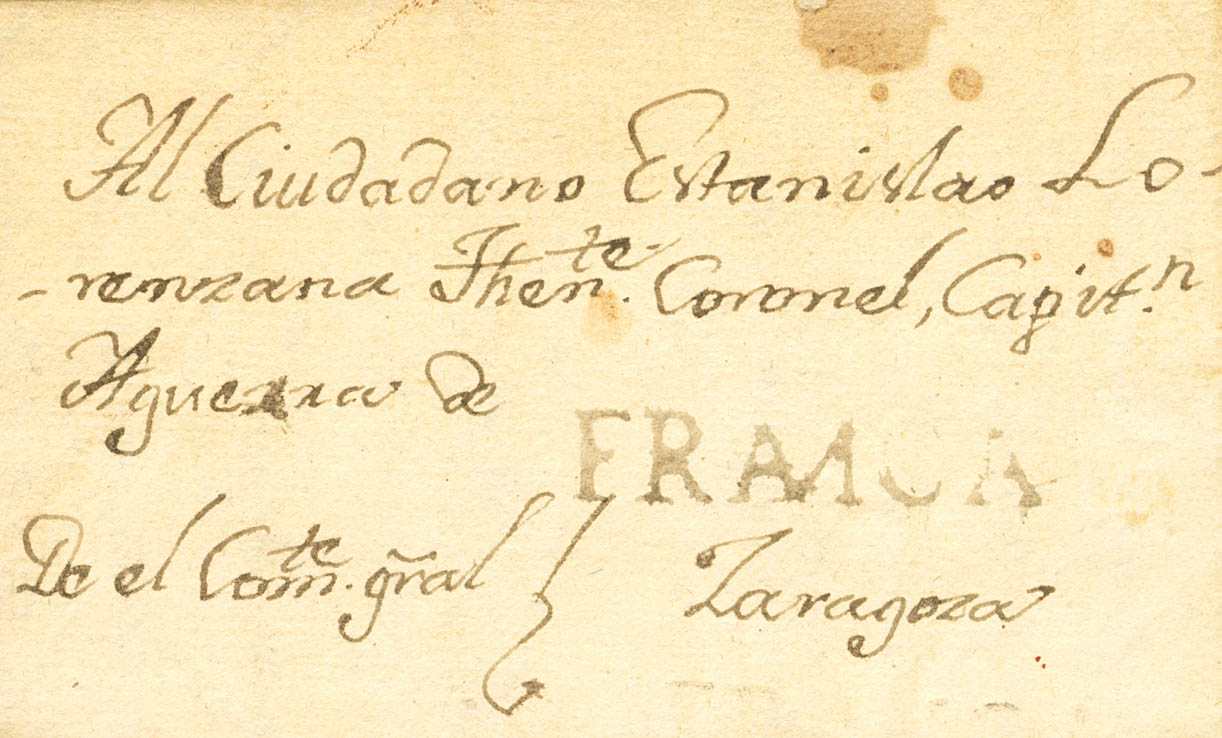 Al Ciudadano Estanislao Lo-
-renzana Then.te Coronel, Capit.n
Aguerra de
FRANCA
De el Com.te gr̃al Zaragoza